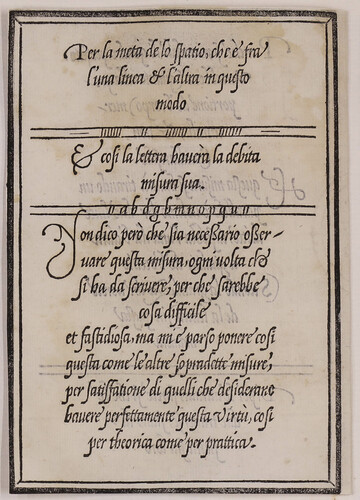 Per la metà de lo spatio, che è fra
l'una linea & l'altra in questo
modo.
& così la lettera hauerà la debita
misura sua.
nabdghmnopqun
Non dico però che sia necessario osser-
uare questa misura, ogni volta che
si ha da scriuere, per che sarebbe
cosa difficile
et fastidiosa, ma mi è parso ponere così
questa come le altre sopradette misure,
per satisfatione di quelli che desiderano
hauere perfettamente questa virtù, così
per theorica come per prattica.